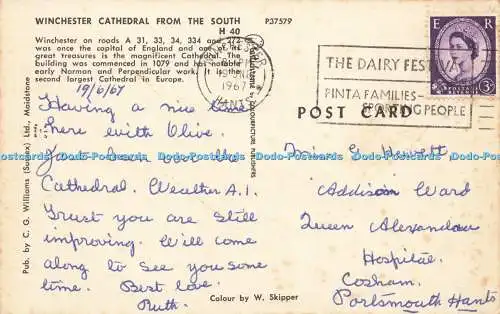 WINCHESTER CATHEDRAL FROM THE SOUTH P37579
H 40
Winchester on roads A 31, 33, 34, 334 and 272
was once the capital of England and one of its
great treasures is the magnificent Cathedral. The
building was commenced in 1079 and has notable
early Norman and Perpendicular work. It is the
second largest Cathedral in Europe.
19/6/67
Having a nice time
here with Olive.
Have been to the
Cathedral. Weather A.1.
Trust you are still
improving. Will come
along to see you some
time. Best love.
Ruth.
Pub. by C. G. Williams (Sussex) Ltd., Maidstone
Colour by W. Skipper
WINCHESTER
1967
HANTS
THE DAIRY FESTIVAL
PINTA FAMILIES—
SPORTING PEOPLE
E R
3D
POST CARD
Addison Ward
Queen Alexandra
Hospital.
Cosham.
Portsmouth Hants
Dodo-Postcards Dodo-Postcards Dodo-Postcards Dodo-Postcards Dodo-Postcards